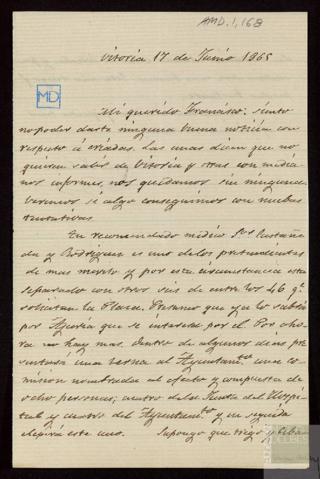 AMD.1,168
Vitoria 17 de Junio 1865
MD
Mi querido Francisco: siento
no poder darte ninguna buena noticia con
respecto a criadas. Las unas dicen que no
quieren salir de Vitoria y otras con media
nos informes, nos quedamos sin ninguna
Veremos si algo conseguimos con nuevas
tentativas.
Tu recomendado médico Sor Castaña
da y Rodriguez es uno de los pretendientes
de mas merito y por esta circunstancia esta
separado con otros seis de entre los 46 qe
solicitan la Plaza, que ya lo sabia
por que se interesa por el. Por aho
ra no hay mas. Dentro de algunos dias pre
sentará una terna al Ayuntamto una co
misión nombrada al efecto y compuesta de
ocho personas; cuatro de la Junta del Hospi
tal y cuatro del Ayuntamto y en seguida
elegirá este uno. Supongo que trigo y